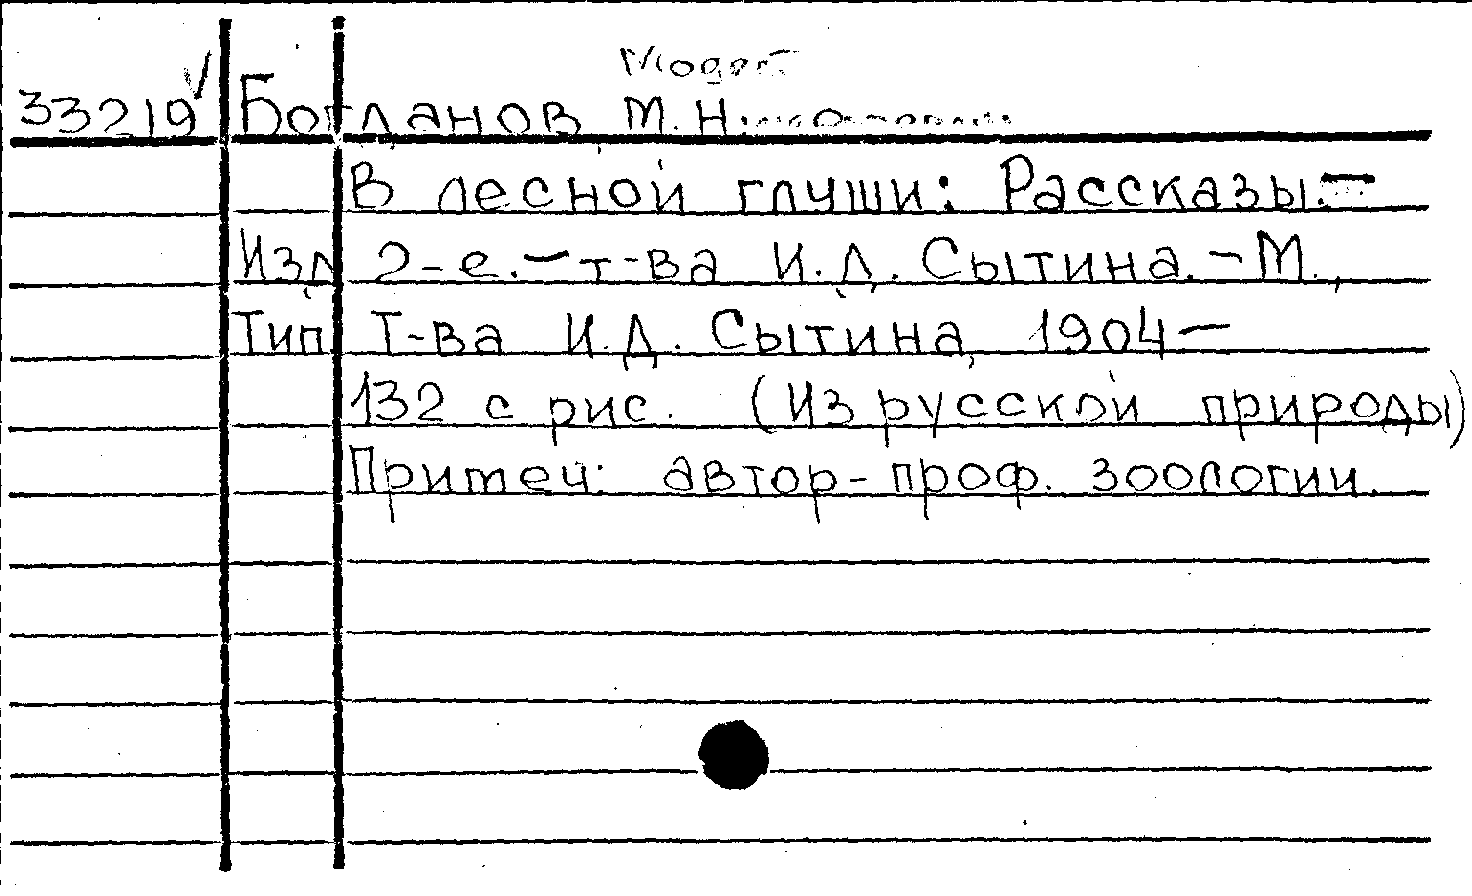 Модест
33219 Богданов М. Н.
В лесной глуши: Рассказы. –
Изд 2-е. – т-ва И. Д. Сытина. – М.,
Тип Т-ва И. Д. Сытина, 1904 –
132 с рис. (Из русской природы)
Примеч: автор – проф. зоологии.